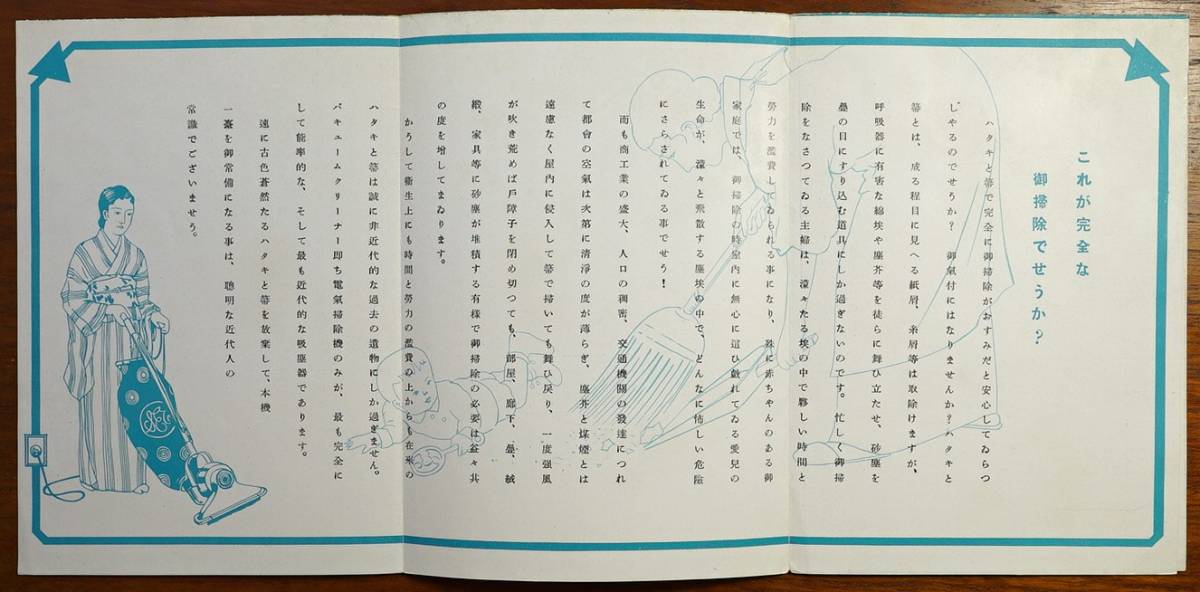 これが完全な
御掃除でせうか?
ハタキと箒で完全に御掃除がおすみだと安心してゐらつ
しやるのでせうか? 御氣付にはなりませんか?ハタキと
箒とは、成る程目に見へる紙屑、糸屑等は取除けますが、
呼吸器に有害な綿埃や塵芥等を徒らに舞ひ立たせ、砂塵を
疊の目にすり込む道具にしか過ぎないのです。忙しく御掃
除をなさつてゐる主婦は、濛々たる埃の中で夥しい時間と
勞力を濫費してゐられる事になり、殊に赤ちやんのある御
家庭では、御掃除の時室內に無心に這ひ戯れてゐる愛兒の
生命が、濛々と飛散する塵埃の中で、どんなに怖しい危險
にさらされてゐる事でせう!
而も商工業の盛大、人口の稠密、交通機關の發達につれ
て都會の空氣は次第に清淨の度が薄らぎ、塵芥と煤煙とは
遠慮なく屋內に侵入して箒で掃いても舞ひ戾り、一度强風
が吹き荒めば戶障子を閉め切つても、部屋、廊下、疊、絨
緞、家具等に砂塵が堆積する有樣で御掃除の必要は益々其
の度を增してまゐります。
かうして衞生上にも時間と勞力の濫費の上からも在來の
ハタキと箒は誠に非近代的な過去の遺物にしか過ぎません。
バキュームクリーナー卽ち電氣掃除機のみが、最も完全に
して能率的な、そして最も近代的な吸塵器であります。
速に古色蒼然たるハタキと箒を放棄して、本機
一臺を御常備になる事は、聰明な近代人の
常識でございませう。